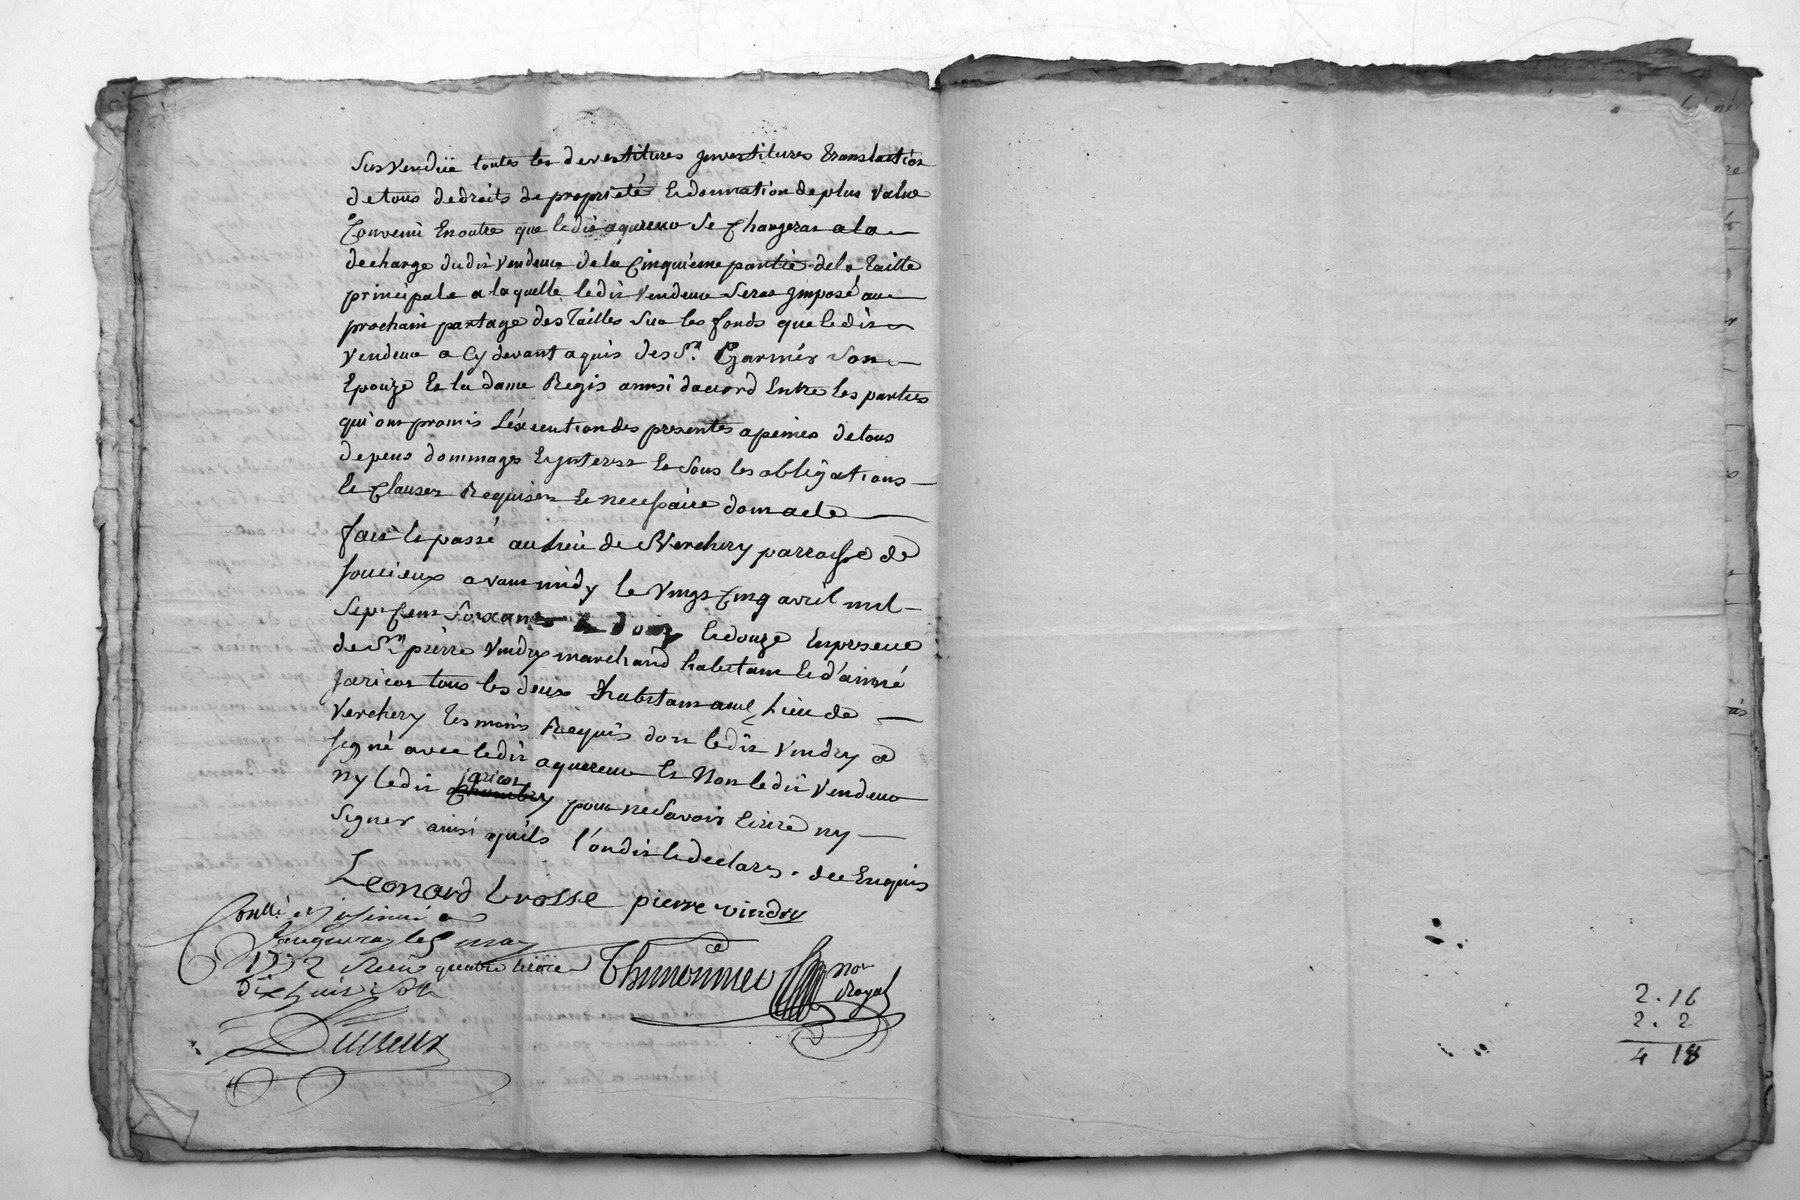 Sus vendüe toutes les devestitures Jnvestitures translation
de tous dedroits de propriété Et donnation de plus value
Convenû En outre que ledit aquereur Se Chargeras a la
decharge dudit vendeur de la Cinquieme partie de la taille
principale a laquelle ledit vendeur Seras Jmposé au
prochain partage des Tailles Sur les fonds que ledit
vendeur a Cy devant aquis des Sr. Garnier Son
Epouze Et la dame Regis ainsi daccord Entre les parties
qui ont promis L'éxecution des presentes a peines de tous
depens dommages Et Jnterest Et Sous les obligations
Et Clauses Requises Et necessaire dont acte
fait Et passé au Lieu de Verchery parroisse de
Soucieux avant midy le vingt Cinq avril mil
Sept Cent Soixante Et douze En presence
de Sr. pierre Vindry marchand habitant Et d'aimé
Jaricot tous les deux habitant au Lieu de
Verchery tesmoins Requis dont ledit Vindry a
signé avec ledit aquereur Et Non ledit vendeur
ny ledit Jaricot pour ne Savoir Ecrire ny
Signer ainsi quils L'ont dit Et declarés. de ce Enquis
Leonard brosse pierre vindry
Conllé et Jnsinué a
Vaugneray le 5 may
1772 Receu quatre livres
dix huit Sols
Thimonnier nore
Royal
2. 16
2. 2
4 18